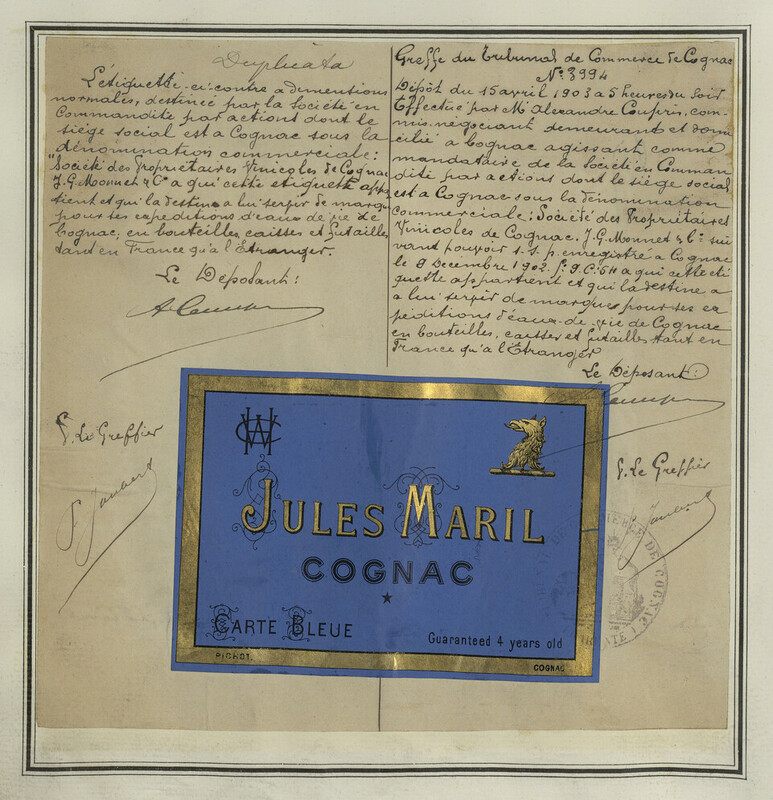 Duplicata
L'étiquette ci-contre a dimentions
normales, destinée par la Société en
Commandite par actions dont le
siège social est a Cognac sous la
dénomination commerciale:
"Société des Propriétaires Vinicoles de Cognac
J. G. Monnet & Cº a qui cette etiquette appar
tient et qui la destine a lui servir de marque
pour ses expéditions d'eaux de vie de
Cognac, en bouteilles caisses et futailles
tant en France qu'a l'Etranger.
Le Déposant:
P. Le Greffier
Greffe du Tribunal de Commerce de Cognac
Nº 3994
Dépôt du 15 avril 1903 a 5 heures du Soir
Effectué par Mr Alexandre Couprin, com-
mis-négociant demeurant et domi
cilié a Cognac agissant comme
mandataire de la Société en Comman
dite par actions dont le siège social
est a Cognac sous la dénomination
commerciale: Société des Propriétaires
Vinicoles de Cognac, J. G. Monnet & Cº sui
vant pouvoir s.s.p. enregistré a Cognac
le 9 Décembre 1902. fº 9. C. 54 a qui cette éti
quette appartient et qui la destine a
a lui servir de marque pour ses ex
péditions d'eaux-de-vie de Cognac
en bouteilles, caisses et futailles tant en
France qu'a l'Etranger
Le Déposant:
P. Le Greffier
JULES MARIL
COGNAC
CARTE BLEUE
Guaranteed 4 years old
PICHOT.
COGNAC
DE COGNAC